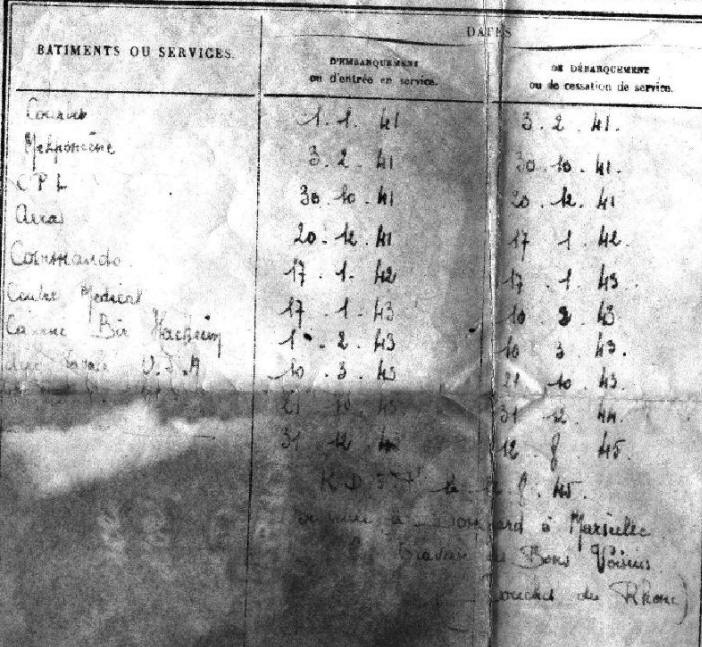 DATES
BATIMENTS OU SERVICES.
D'EMBARQUEMENT
ou d'entrée en service.
DE DÉBARQUEMENT
ou de cessation de service.
Courbet 1. 1. 41 3. 2. 41.
Melpomène 3. 2. 41 30. 10. 41.
C P L 30. 10. 41 20. 12. 41
Arras 20. 12. 41 17 1. 42.
Commando. 17. 1. 42 17. 1. 43
Centre Médical 17. 1. 43 10 2 43
Caserne Bir Hacheim 1. 2. 43 10 3 43.
10. 3. 43 21 10. 43.
21 10. 43 31 12. 44.
31 12 12 8 45.
8. 45.
à Marseille
Traverse des Bons Voisins
du Rhône)